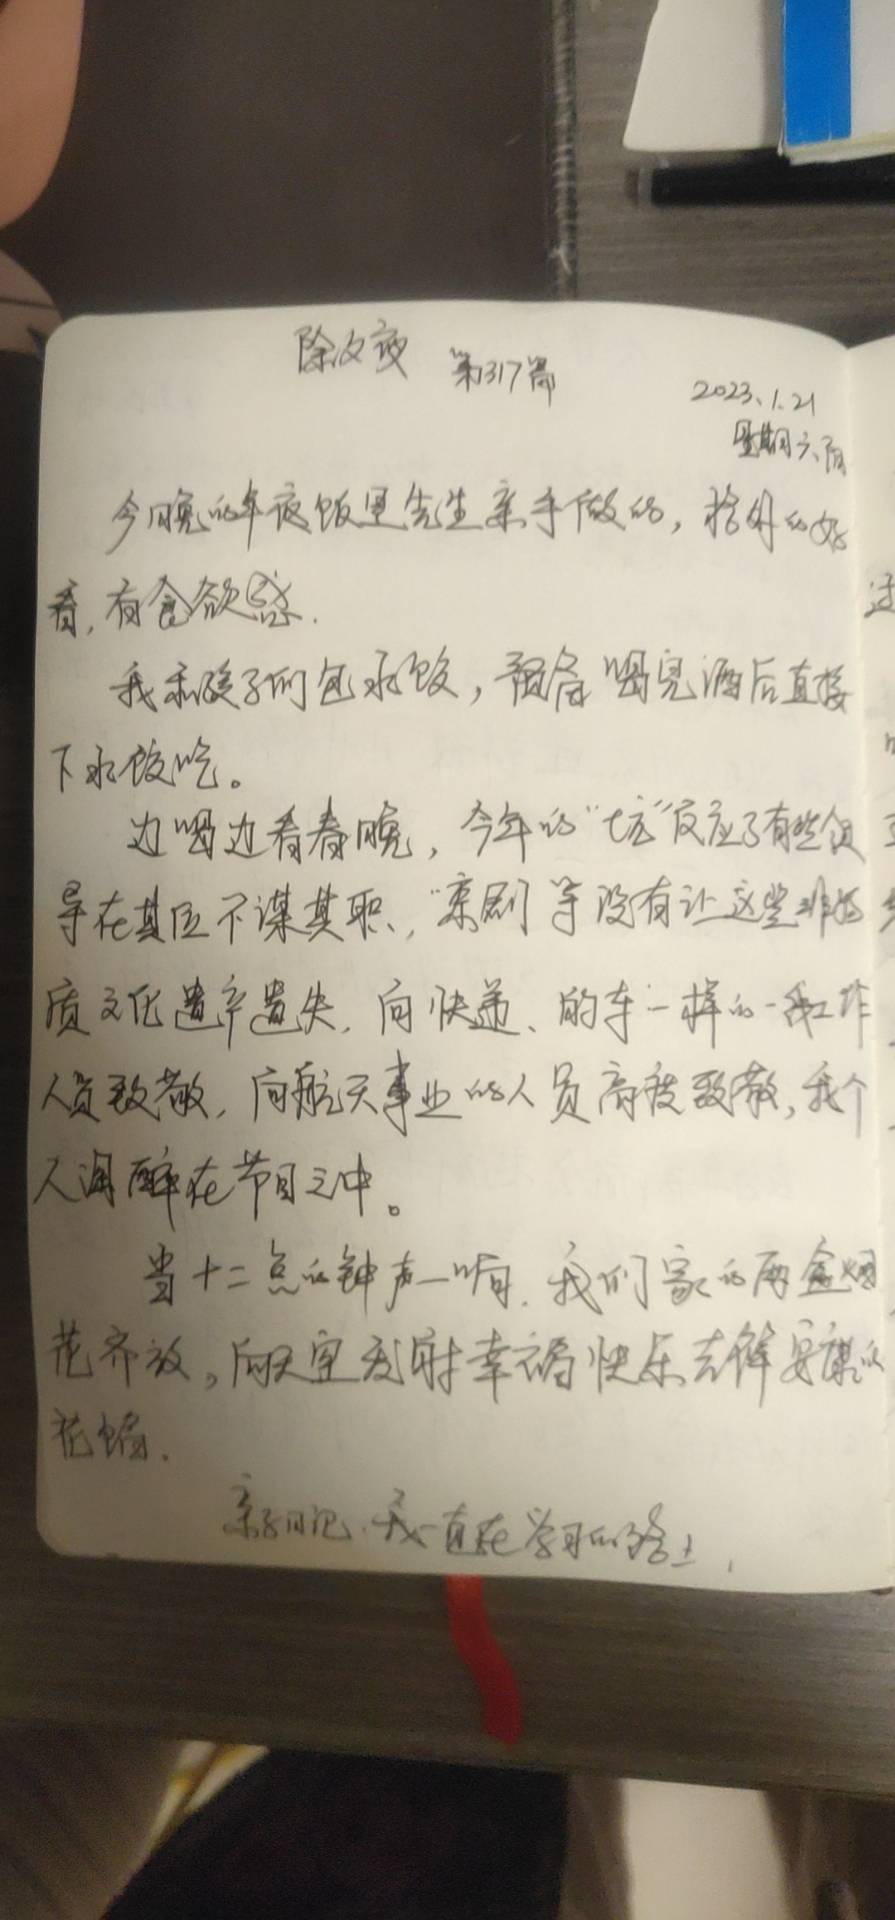 除夕夜 第317篇
2023.1.21
星期六、阴
今晚的年夜饭是先生亲手做的，格外的好
看，有食欲感.
我和孩子们包水饺，预备喝完酒后直接
下水饺吃。
边喝边看春晚，今年的“坑”反应了有些领
导在其位不谋其职，“京剧等没有让这些非物
质文化遗产遗失，向快递、的车一样的一线工作
人员致敬，向航天事业的人员高度致敬，我个
人陶醉在节目之中。
当十二点的钟声一响，我们家的两盒烟
花齐放，向天空发射幸福快乐吉祥安康的
花
亲子日记.我一直在学习的路上.